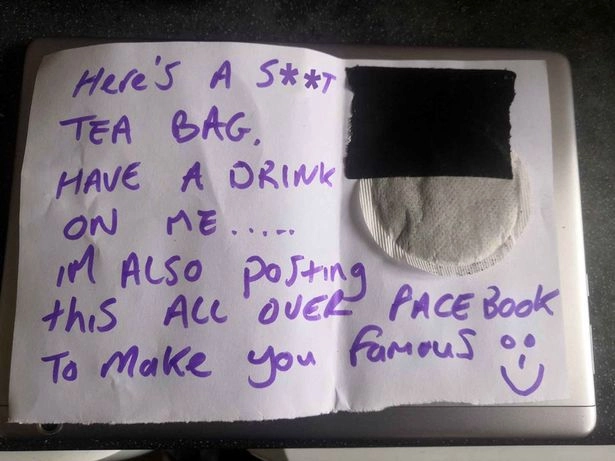 Here's A S**T
TEA BAG.
HAVE A DRINK
ON ME.....
im ALSO posting
this ALL OVER FACEBOOK
To Make you famous